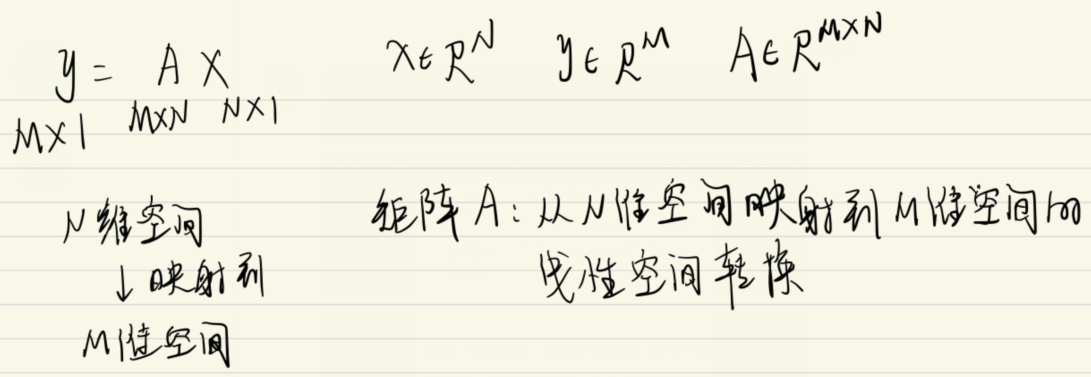 y = A X
M×1 M×N N×1
x∈R^N y∈R^M A∈R^{M×N}
N维空间
↓映射到
M维空间
矩阵A：从N维空间映射到M维空间的
线性空间转换